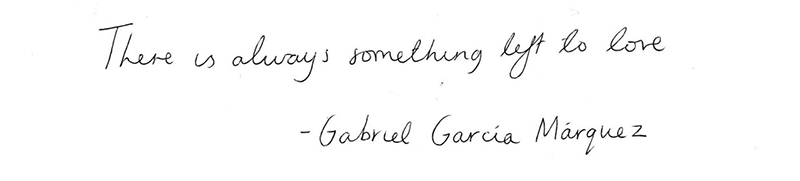 There is always something left to love
- Gabriel García Márquez